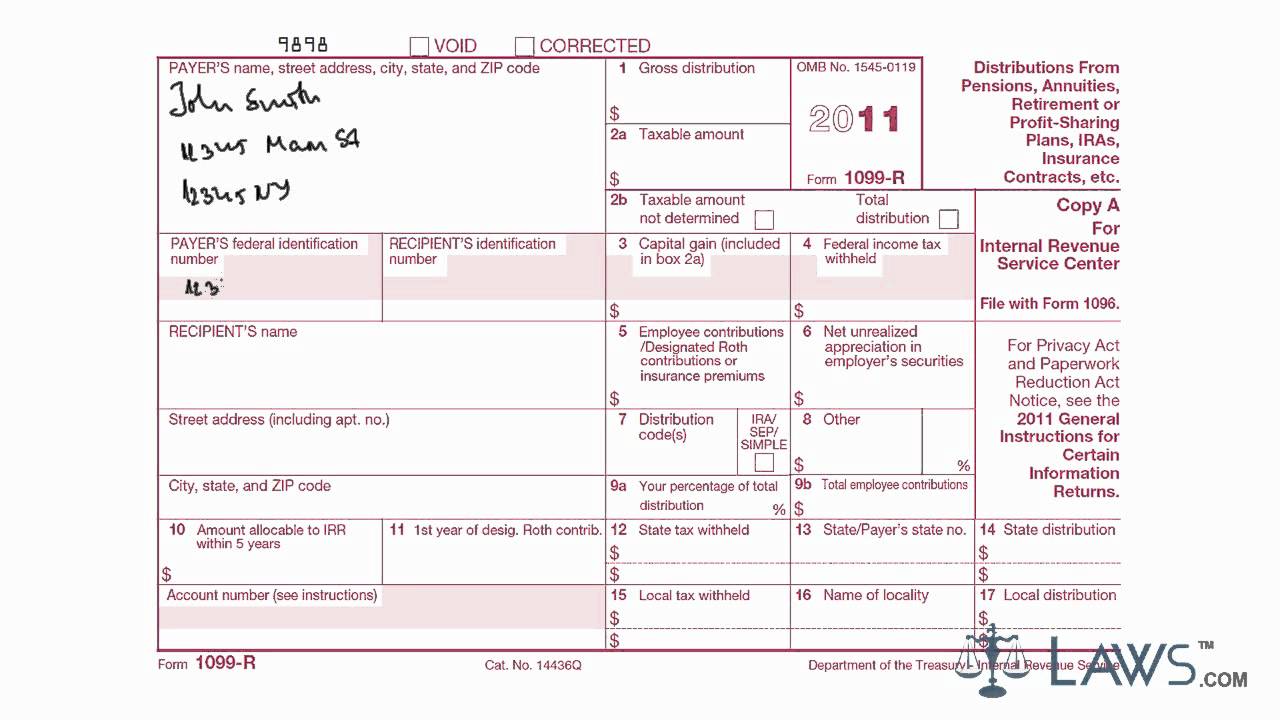 9898 VOID CORRECTED
PAYER'S name, street address, city, state, and ZIP code
John Smith
12345 Main St
12345 NY
1 Gross distribution
$
2a Taxable amount
$
OMB No. 1545-0119
2011
Form 1099-R
Distributions From
Pensions, Annuities,
Retirement or
Profit-Sharing
Plans, IRAs,
Insurance
Contracts, etc.
2b Taxable amount
not determined
Total
distribution
Copy A
For
Internal Revenue
Service Center
File with Form 1096.
PAYER'S federal identification
number
123
RECIPIENT'S identification
number
3 Capital gain (included
in box 2a)
$
4 Federal income tax
withheld
$
RECIPIENT'S name
5 Employee contributions
/Designated Roth
contributions or
insurance premiums
$
6 Net unrealized
appreciation in
employer's securities
$
For Privacy Act
and Paperwork
Reduction Act
Notice, see the
2011 General
Instructions for
Certain
Information
Returns.
Street address (including apt. no.)
7 Distribution
code(s)
IRA/
SEP/
SIMPLE
8 Other
$ %
City, state, and ZIP code
9a Your percentage of total
distribution %
9b Total employee contributions
$
10 Amount allocable to IRR
within 5 years
$
11 1st year of desig. Roth contrib.
12 State tax withheld
$
$
13 State/Payer's state no.
14 State distribution
$
$
Account number (see instructions)
15 Local tax withheld
$
$
16 Name of locality
17 Local distribution
$
$
Form 1099-R
Cat. No. 14436Q
Department of the Treasury - Internal Revenue Service
LAWS.COM™